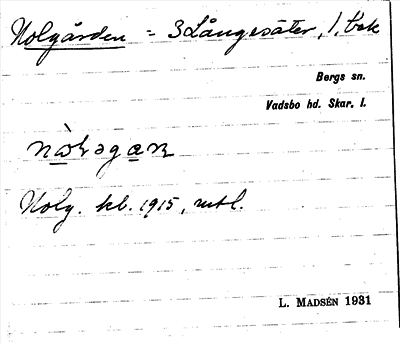 Nolgården = 3 Långesäter, 1, bek
Bergs sn.
Vadsbo hd. Skar. l.
Nolg. kb. 1915, mtl.
L. MADSÉN 1931